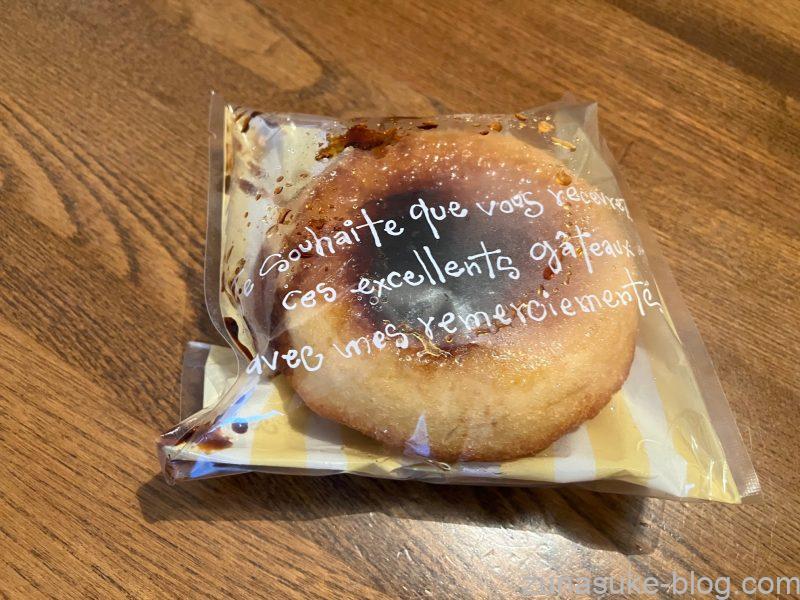 Je souhaite que vous receviez
ces excellents gâteaux
avec mes remerciements
zunasuke-blog.com